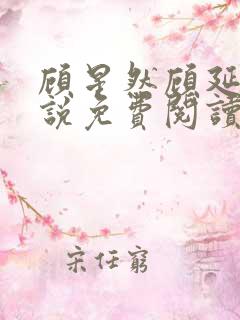 顾星然顾延
說免費閱讀
宋任窮